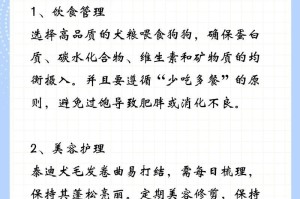 1、饮食管理
选择高品质的犬粮喂食狗狗,确保蛋白
质、碳水化合物、维生素和矿物质的均
衡摄入。并且要遵循“少吃多餐”的原
则,避免过饱导致肥胖或消化不良。
2、美容护理
泰迪犬毛发卷曲易打结,需每日梳理,
保持其蓬松亮丽。定期美容修剪,保持